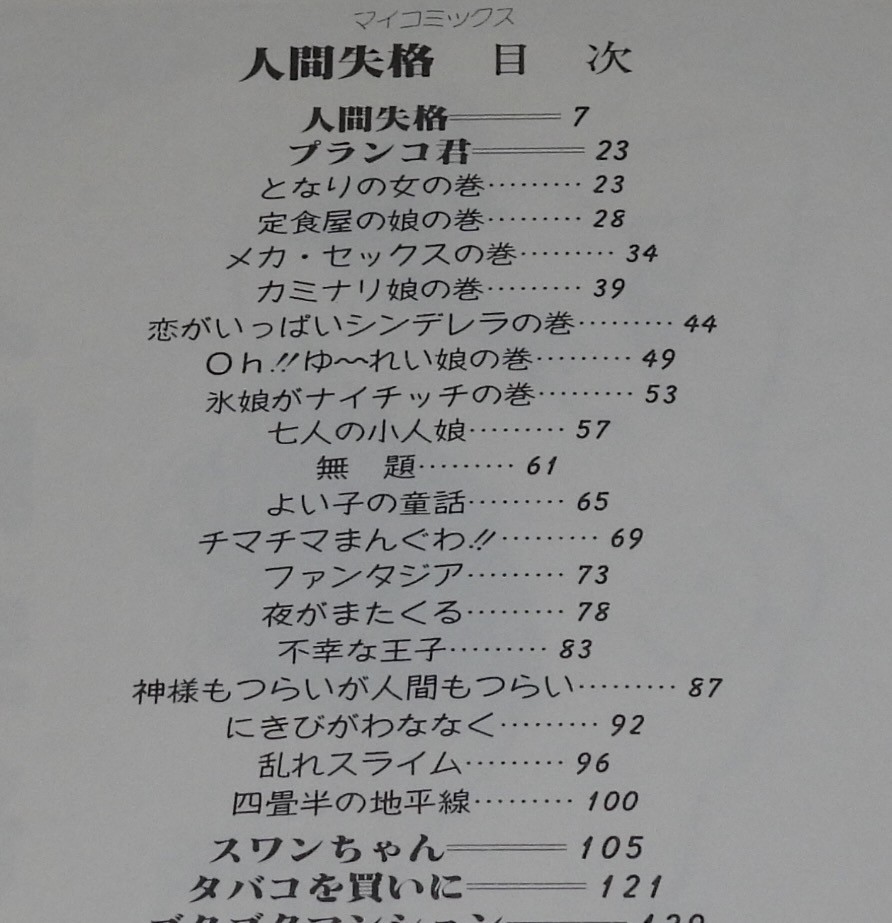 マイコミックス
人間失格 目 次
人間失格 7
プランコ君 23
となりの女の巻……… 23
定食屋の娘の巻……… 28
メカ・セックスの巻……… 34
カミナリ娘の巻……… 39
恋がいっぱいシンデレラの巻……… 44
Oh!!ゆ〜〜れい娘の巻……… 49
氷娘がナイチッチの巻……… 53
七人の小人娘……… 57
無 題……… 61
よい子の童話……… 65
チマチマまんぐわ!!……… 69
ファンタジア……… 73
夜がまたくる……… 78
不幸な王子……… 83
神様もつらいが人間もつらい……… 87
にきびがわななく……… 92
乱れスライム……… 96
四畳半の地平線……… 100
スワンちゃん 105
タバコを買いに 121